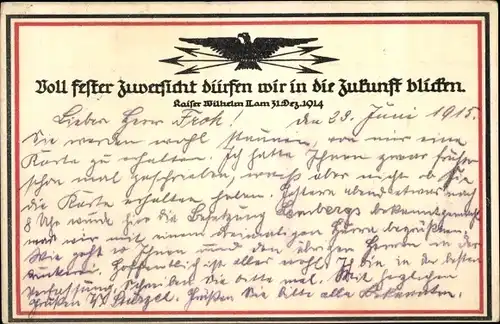 Voll fester Zuversicht dürfen wir in die Zukunft blicken.
Kaiser Wilhelm II. am 31. Dez. 1914
Lieber Herr Froh! den 23. Juni 1915.
Sie werden wohl staunen, von mir eine
Karte zu erhalten. Ich hatte Ihnen zwar früher
schon mal geschrieben, weiß aber nicht ob Sie
die Karte erhalten haben. Gestern abend etwas nach
8 Uhr wurde hier die Besetzung Lembergs bekanntgemacht
was wir mit einem dreimaligen Hurra begrüßten.
Wie geht es Ihnen und den übrigen Herren in der
Hoffentlich ist alles wohl. Ich bin in der besten
Verfassung. Schreiben Sie bitte mal. Mit herzlichen
Grüßen Grüßen Sie bitte alle Bekannten.